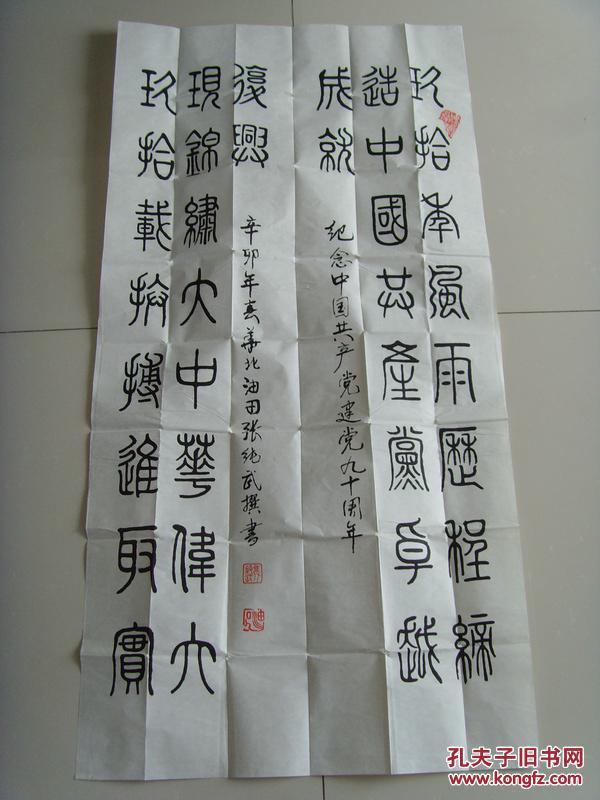 玖拾年風雨歷程締
造中國共產黨卓越
成就
纪念中国共产党建党九十周年
玖拾載拚搏進取實
現錦繡大中華偉大
復興
辛卯年春華北油田张纯武撰書
孔夫子旧书网
www.kongfz.com